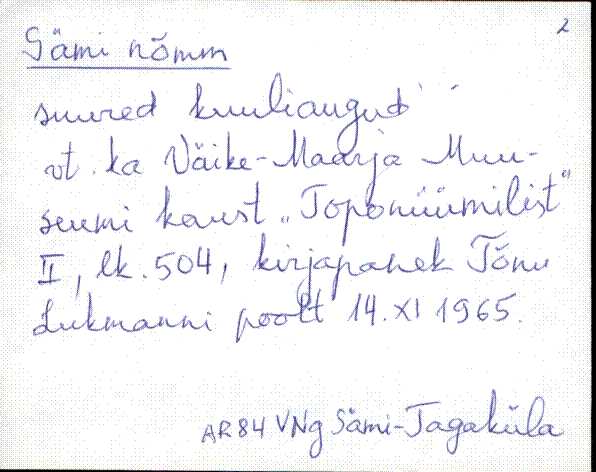 2
Sämi nõmm
suured kuuliaugud
vt. ka Väike-Maarja Muu-
seumi kaust „Toponüümilist"
II, lk. 504, kirjapanek Tõnu
Lukmanni poolt 14. XI 1965.
AR84 VNg Sämi-Tagaküla